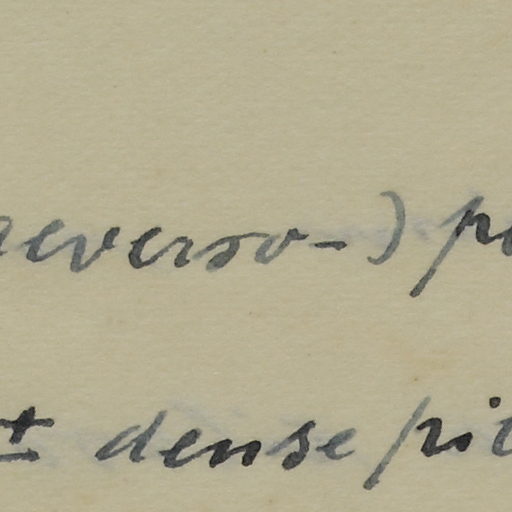 everso-) p
± dense pil